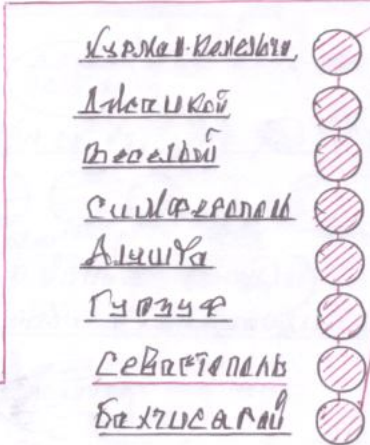 Курман-Кемельчи
Джанкой
Веселый
Симферополь
Алушта
Гурзуф
Севастополь
Бахчисарай